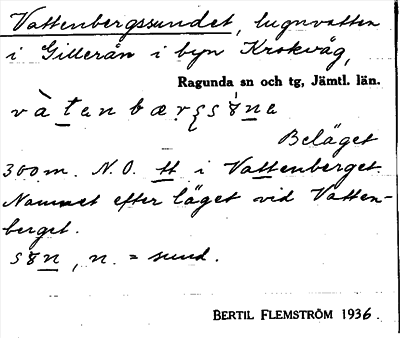 Vattenbergssundet, lugnvatten
i Gillerån i byn Krokvåg,
Ragunda sn och tg, Jämtl. län.
Beläget
300 m. N.O. tt i Vattenberget.
Namnet efter läget vid Vatten-
berget.
n. = sund.
BERTIL FLEMSTRÖM 1936.